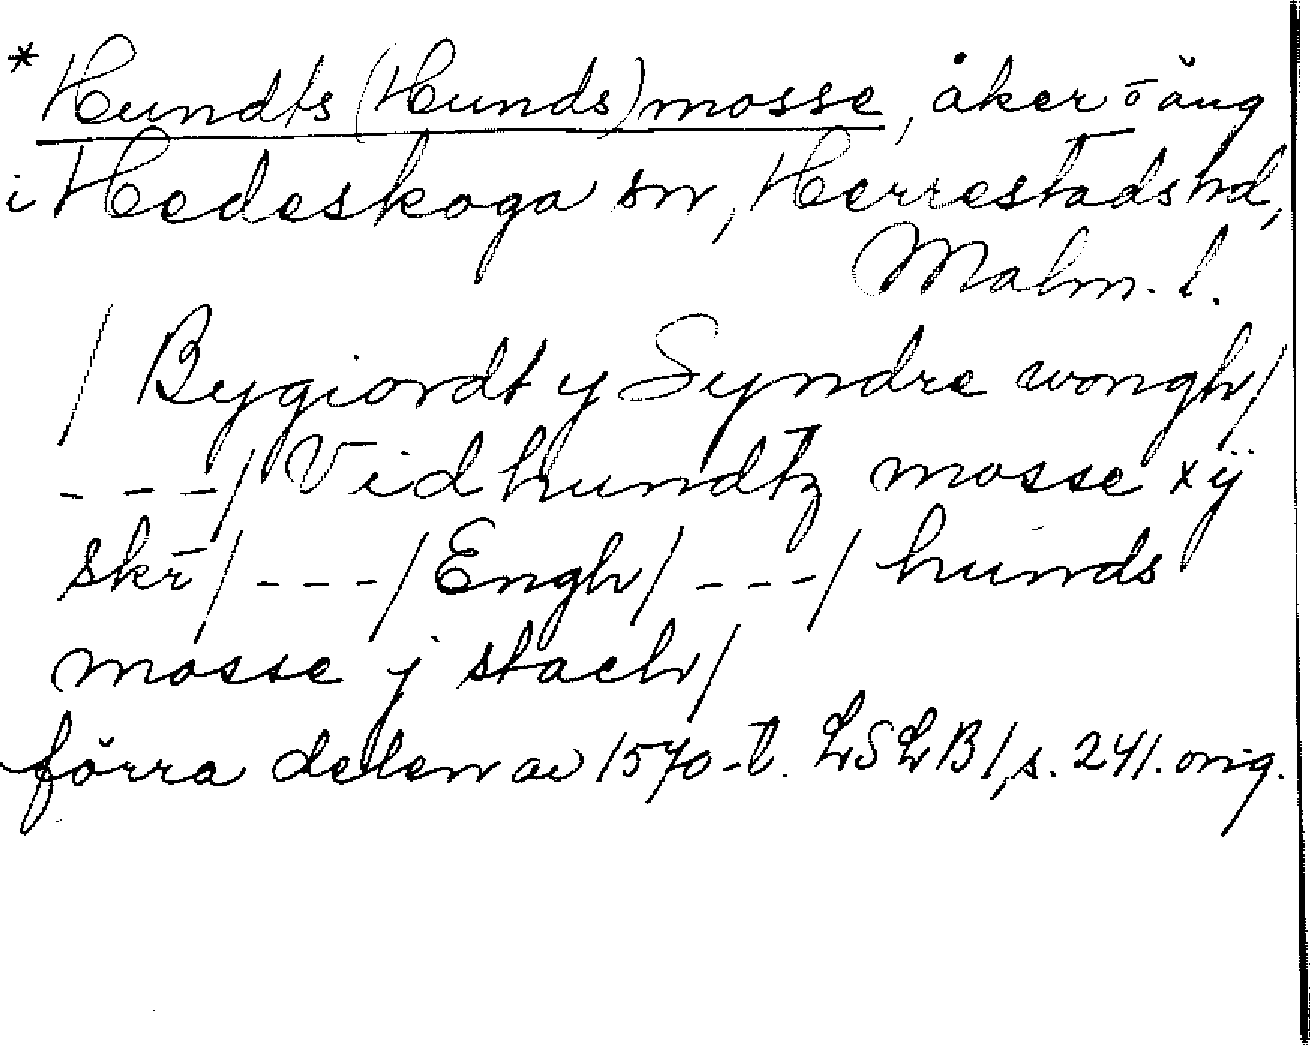 * Hundts (Hunds)mosse, åker o äng
i Hedeskoga sn, Herrestads hd,
Malm. l.
/ Bygiordt y Syndre wongh/
- - -/ Vid hundtz mosse xij
skr̄/ - - -/ Engh/ - - -/ hunds
mosse j stach/
förra delen av 1570-t. LSLB 1, s. 241. orig.